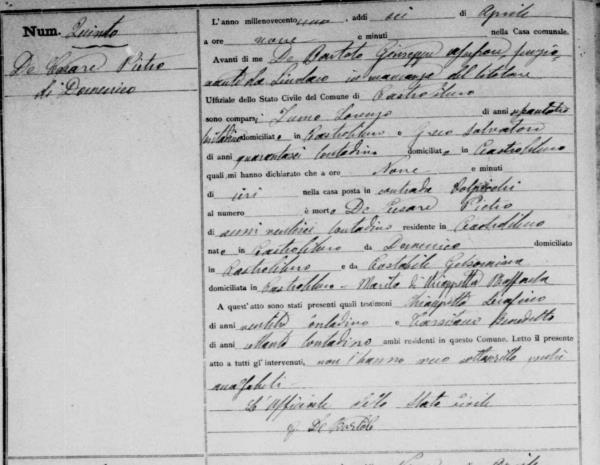 Num. Quinto
De Cesare Pietro
di Domenico
L'anno millenovecento uno, addì sei di Aprile
a ore nove e minuti nella Casa comunale.
Avanti di me De Bartolo Giuseppe assessore funzio-
nante da Sindaco in mancanza del titolare
Uffiziale dello Stato Civile del Comune di Castrolibero
sono comparsi Zumo Lorenzo di anni
domiciliato in Castrolibero e Greco Salvatore
di anni quarantasei contadino domiciliato in Castrolibero
quali mi hanno dichiarato che a ore Nove e minuti
di ieri nella casa posta in contrada
al numero è morto De Cesare Pietro
di anni ventisei contadino residente in Castrolibero
nato in Castrolibero da Domenico domiciliato
in Castrolibero e da Costabile Gelsomina
domiciliata in Castrolibero - Marito di Chiappetta Raffaela
A quest'atto sono stati presenti quali testimoni Chiappetta Serafino
di anni ventitre contadino e Benedetto
di anni ottanta contadino ambi residenti in questo Comune. Letto il presente
atto a tutti gl'intervenuti, non l'hanno meco sottoscritto perchè
analfabeti -
L'Officiale dello Stato Civile
G. De Bartolo